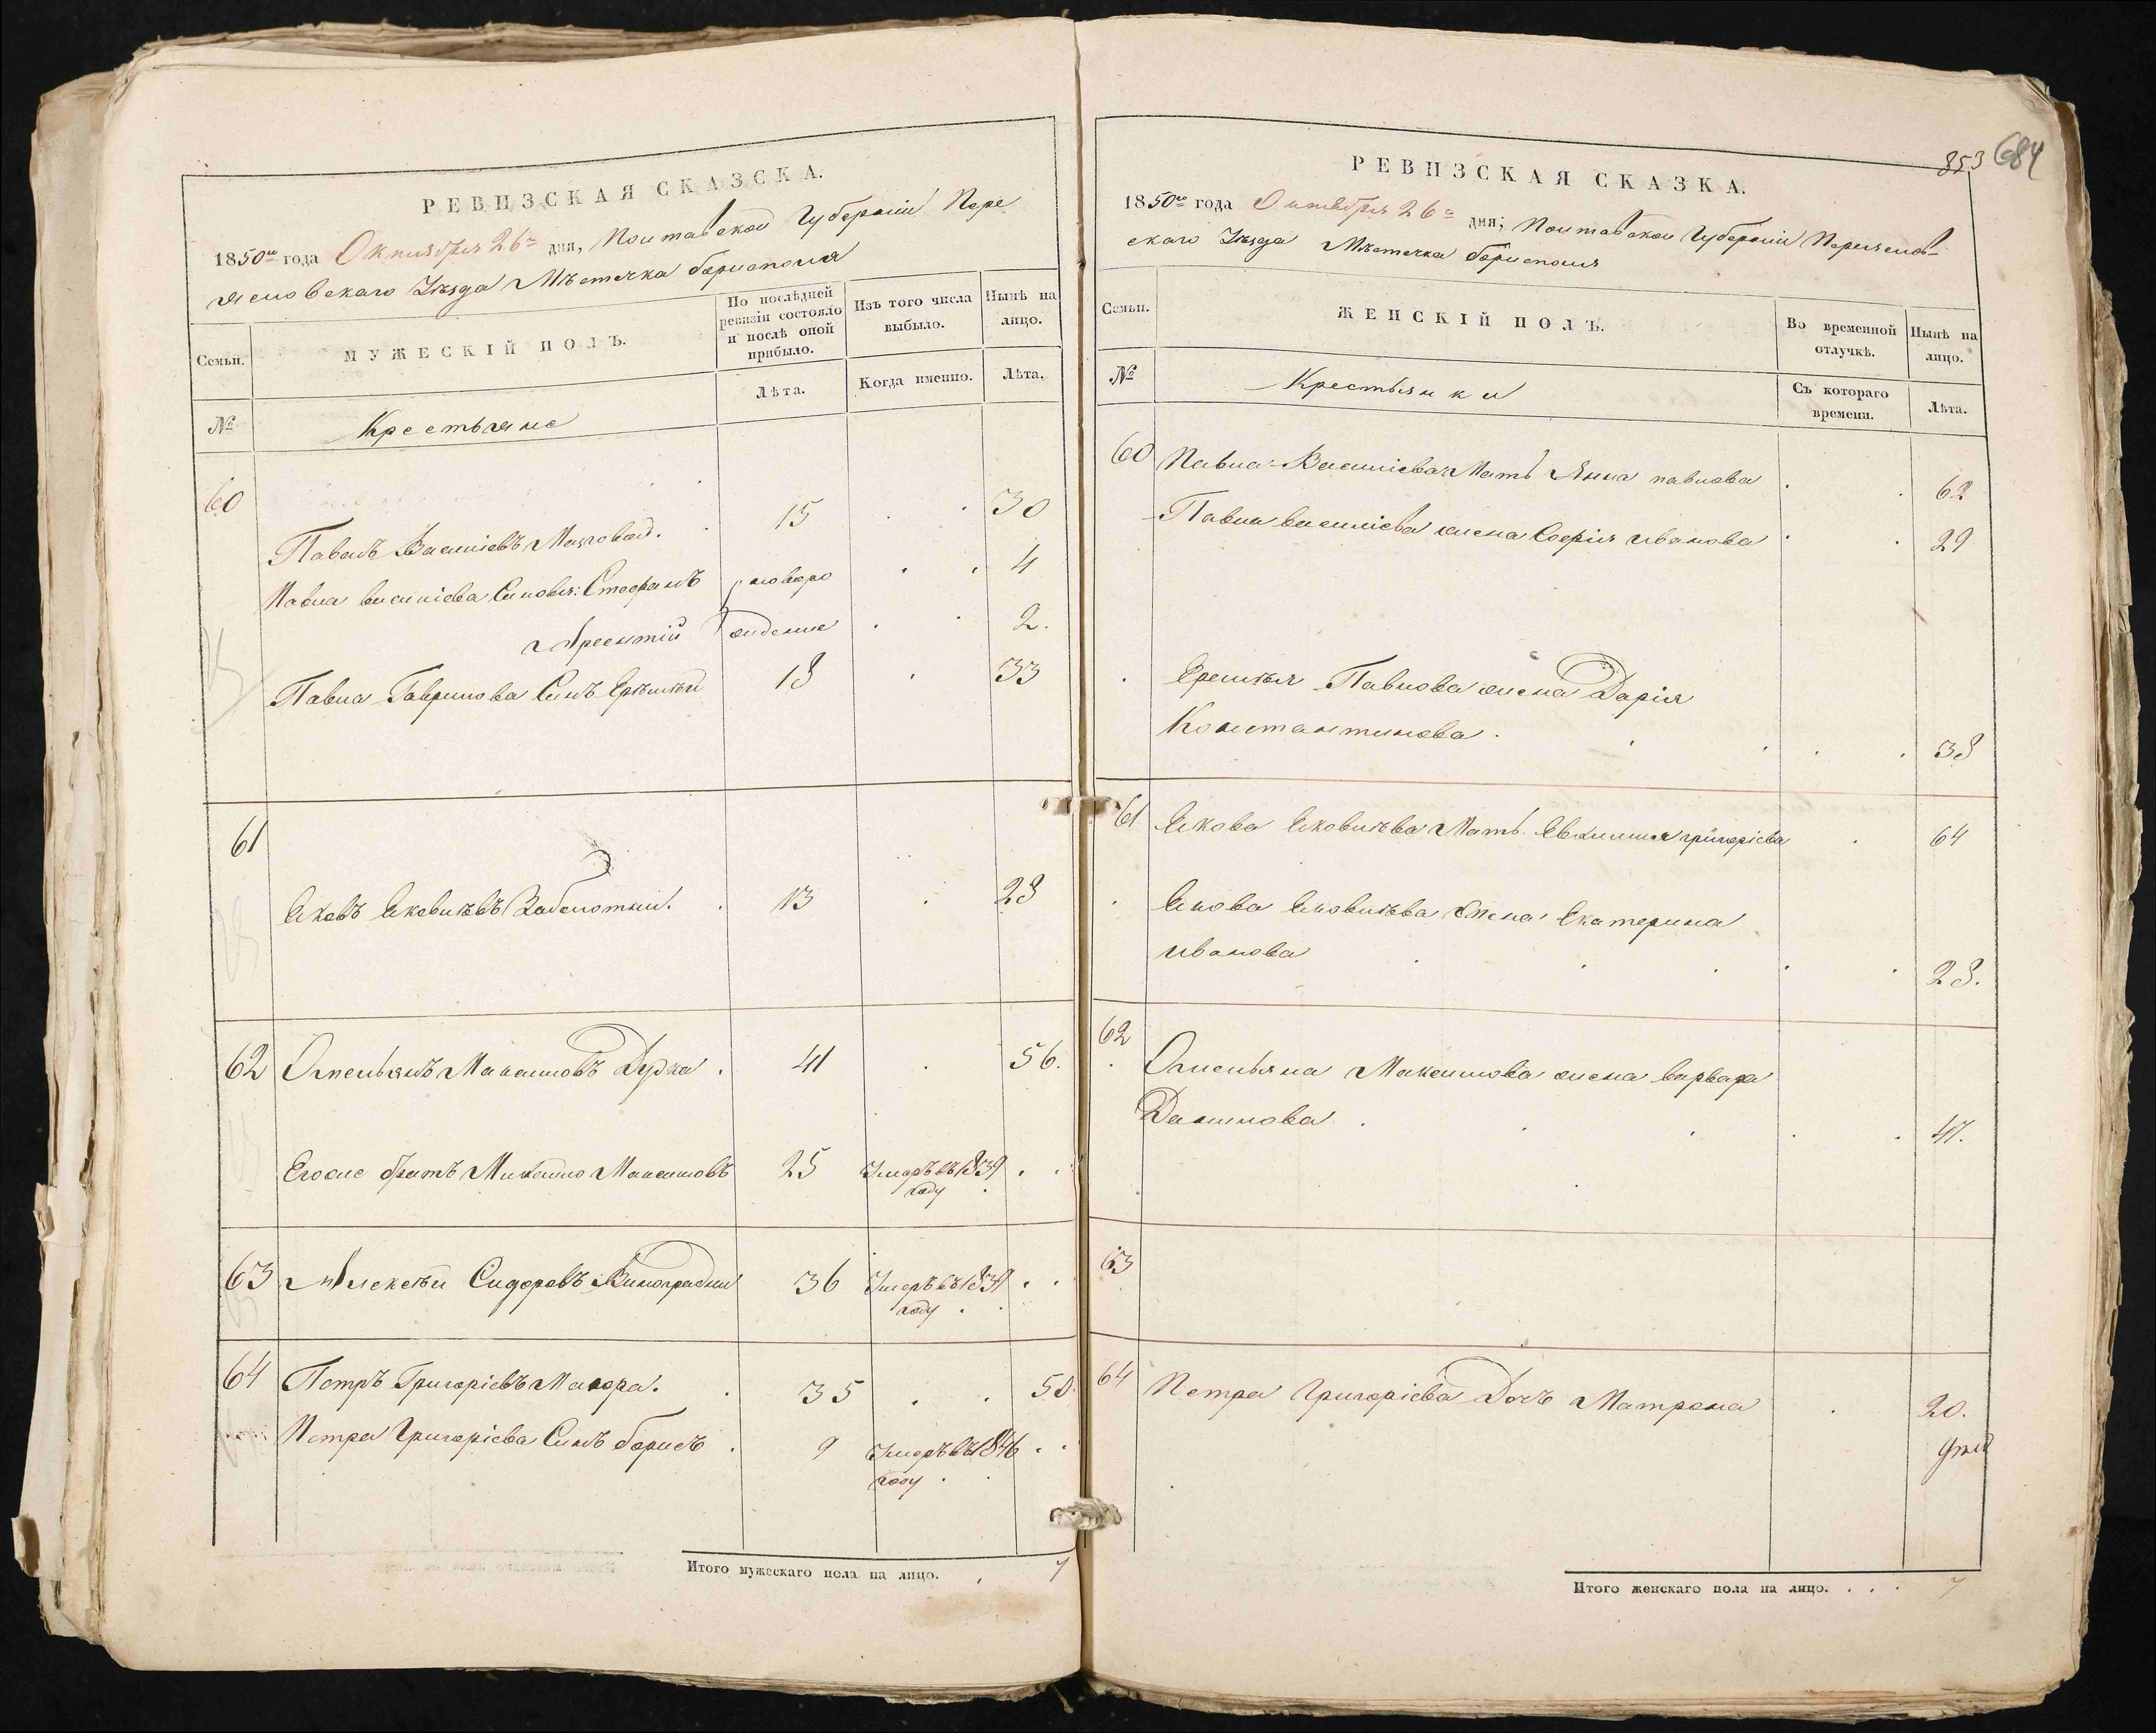 РЕВИЗСКАЯ СКАЗСКА.
1850го года Октября 26го дня, Полтавской Губерніи Пере
яславскаго Уѣзда Мѣстечка борисполя
Семьи.
МУЖЕСКІЙ ПОЛЪ.
По послѣдней ревизіи состояло и послѣ оной прибыло.
Изъ того числа выбыло.
Нынѣ на лицо.
№
Крестьяне
Лѣта.
Когда именно.
Лѣта.
60
Павелъ Василіевъ . 15 . . 30
Павла василіева Сыновья: Стефанъ новоро . . 4
Арсентій жденые . . 2.
Павла Гаврилова Сынъ Ерємѣй 18 . 33
61
Яковъ Яковлѣвъ Заболотный. . 13 . 28
62 Омельянъ Максимовъ Дудка . 41 . 56.
Егоже братъ Михайло Максимовъ 25 Умеръ въ 1839 . .
году .
63 Алексѣй Сидоровъ Виноградный 36 Умеръ въ 1839 . .
году . .
64 Петръ Григоріевъ Мазора. . 35 . . 50.
Петра Григоріева Сынъ борисъ . 9 Умеръ въ 1846 . .
году . .
Итого мужескаго пола на лицо. . 7
853 684
РЕВИЗСКАЯ СКАЗКА.
1850го года Октября 26го дня; Полтавской Губерніи Переяслав-
скаго Уѣзда Мѣстечка борисполя
Семьи.
ЖЕНСКІЙ ПОЛЪ.
Во временной отлучкѣ.
Нынѣ на лицо.
№
Крестьянки
Съ котораго времени.
Лѣта.
60 Павла Василіева Мать Анна павлова . . 62
Павла василіева жена Софія иванова . . 29
. Еремѣя Павлова жена Дарія
Константинова . . . . . 38
61 Якова Яковлѣва Мать Евдокия григоріева . 64
. Якова Яковлѣва Жена Екатерина
иванова . . . . . 28.
62
. Омельяна Максимова жена варвара
Данилова . . . . . 47.
63
64 Петра Григоріева Дочъ Матрона . 20.
Итого женскаго пола на лицо. . . . 7